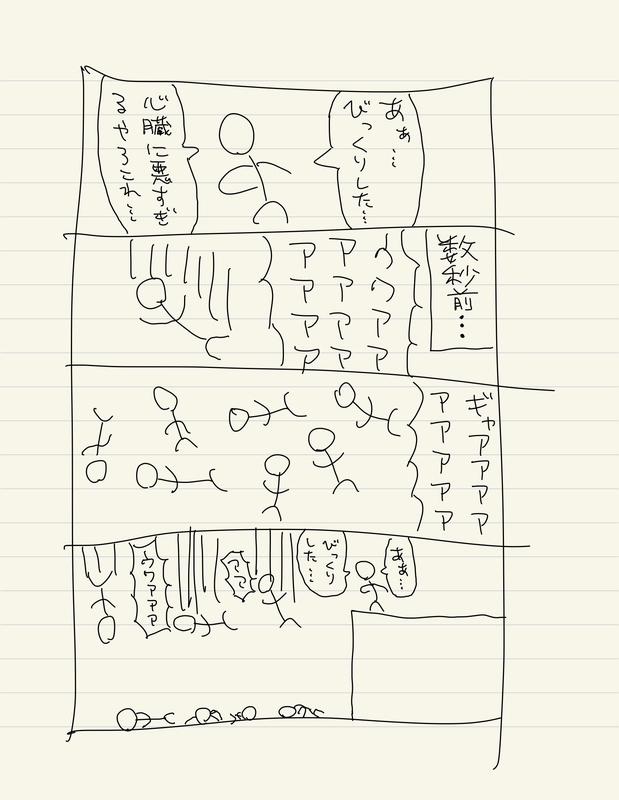 あぁ…
びっくりした…
心臓に悪すぎ
るやろこれ…
数秒前…
ウワアア
アアアア
アアアア
ギャアアアア
アアアアア
ああ…
びっくり
した…
アア
ウワァァァ